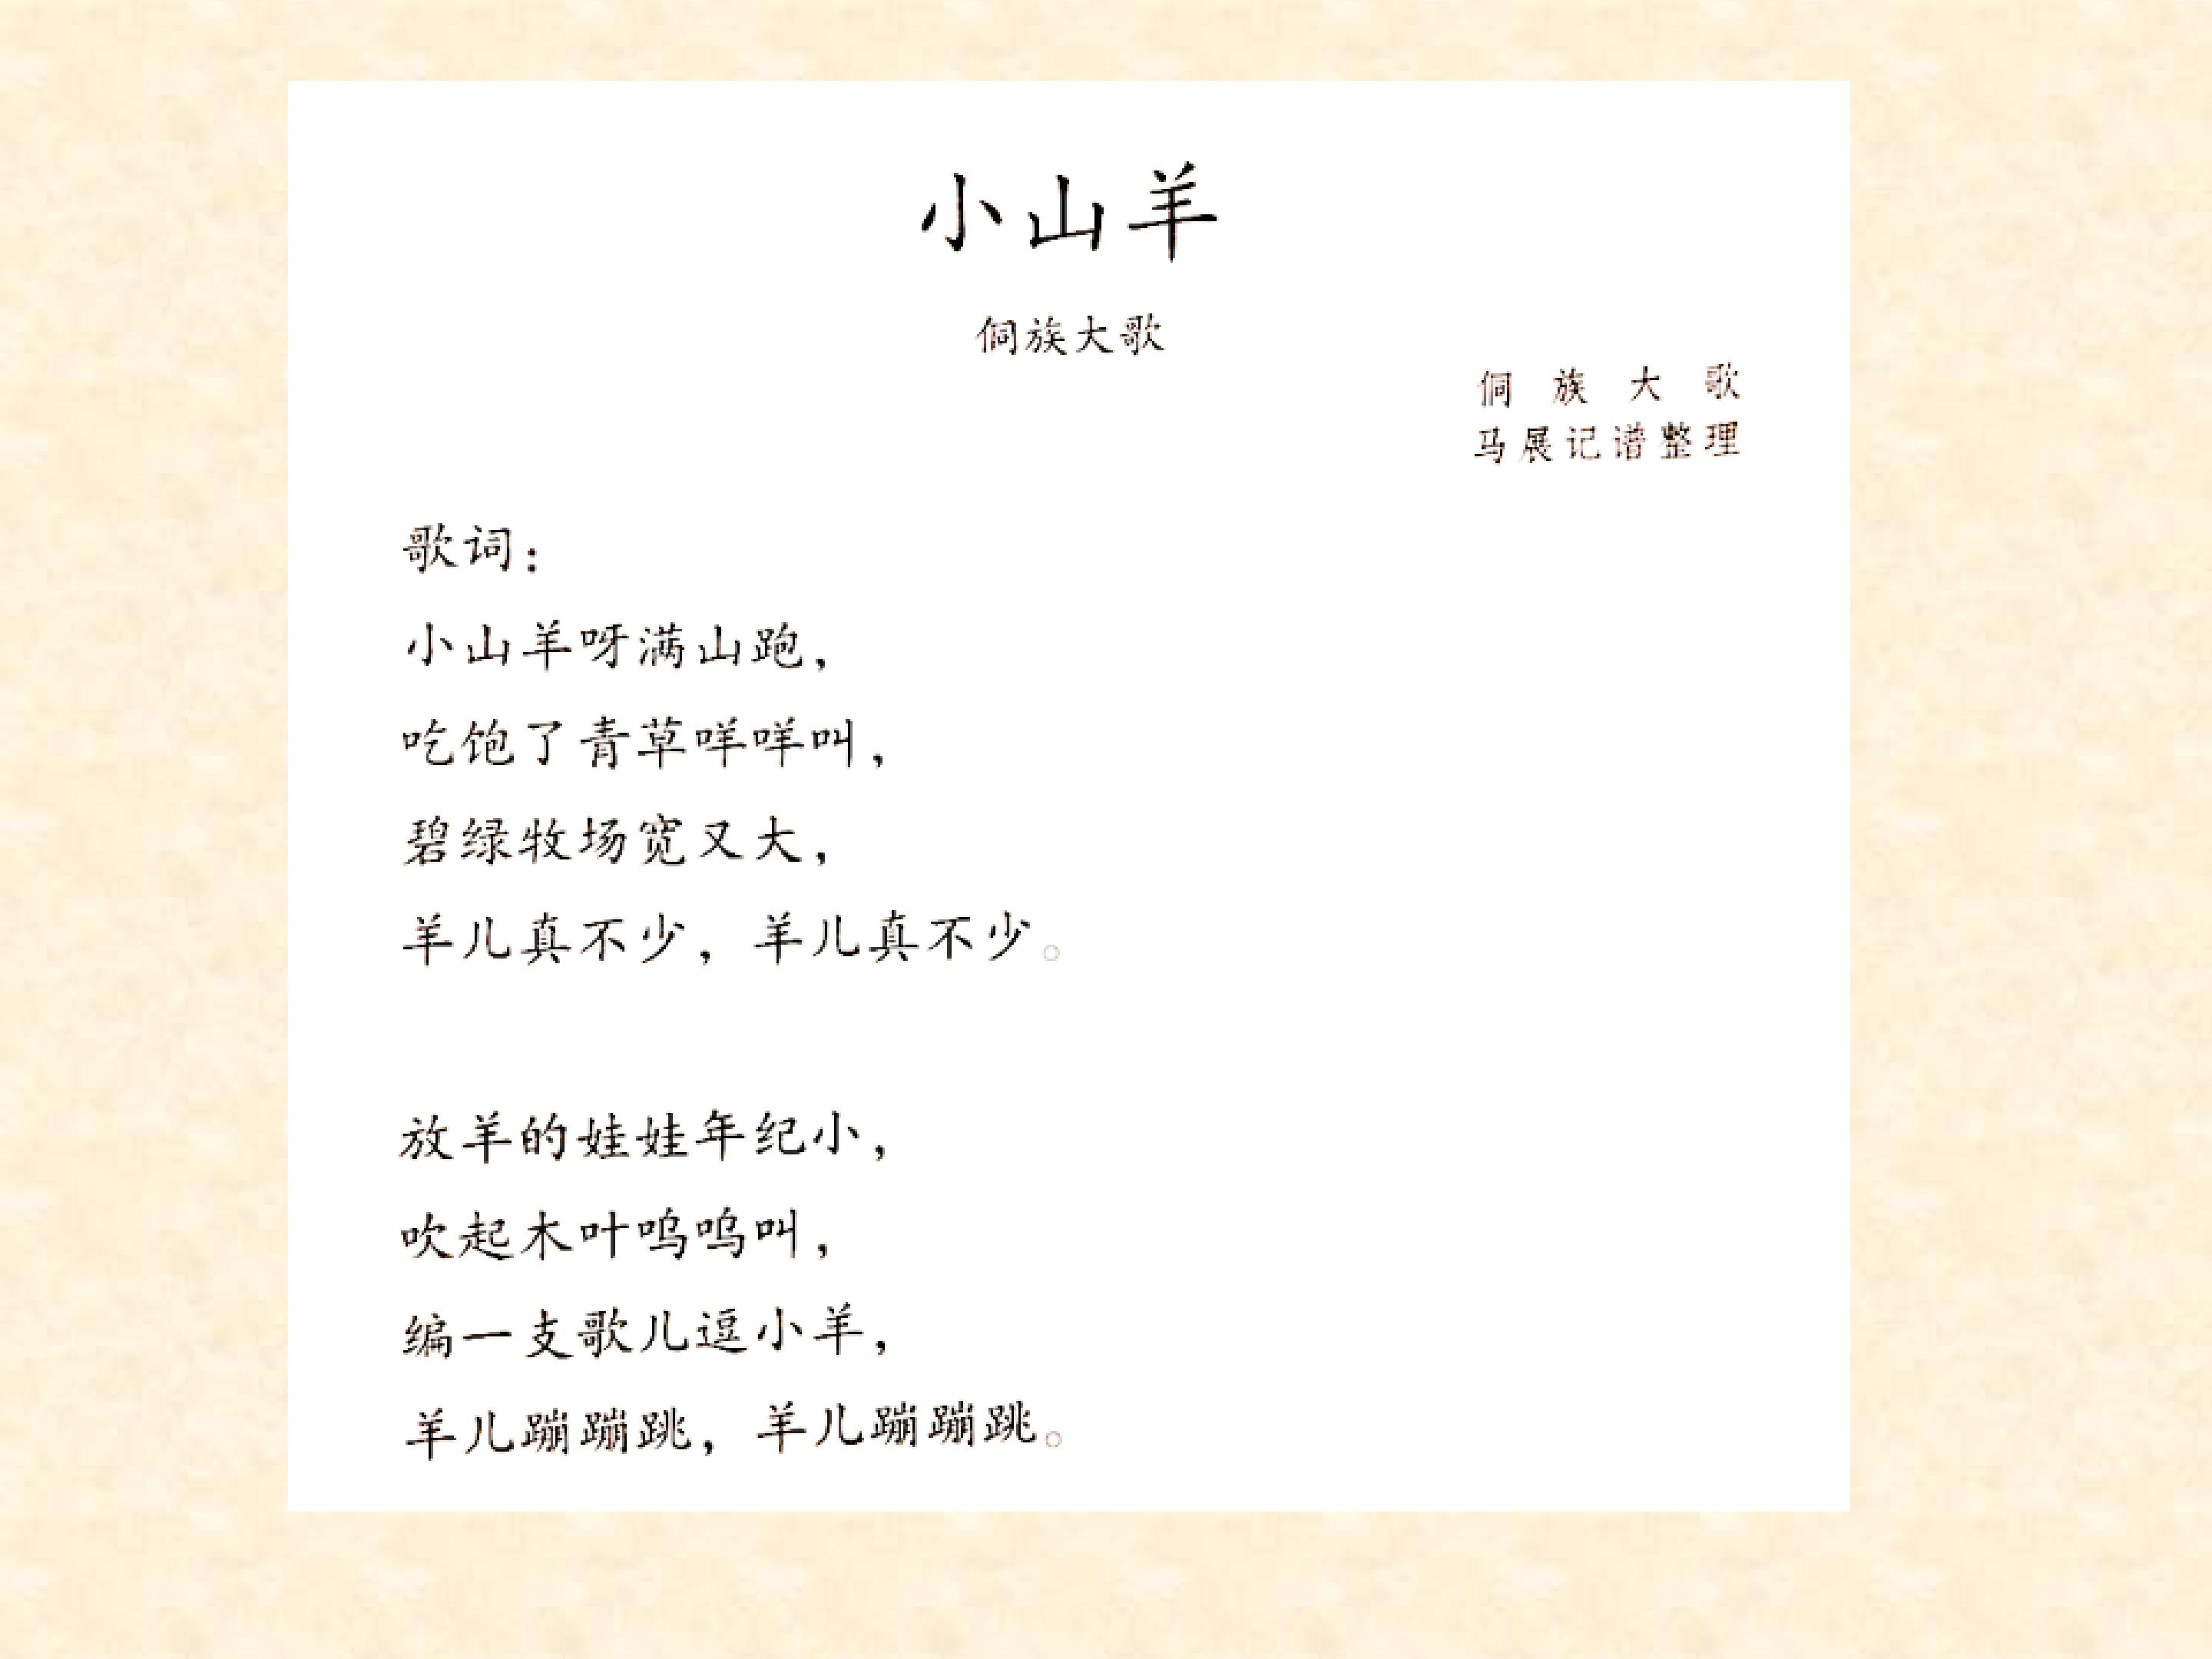 小山羊
侗族大歌
侗族大歌
马展记谱整理
歌词：
小山羊呀满山跑，
吃饱了青草咩咩叫，
碧绿牧场宽又大，
羊儿真不少，羊儿真不少。
放羊的娃娃年纪小，
吹起木叶呜呜叫，
编一支歌儿逗小羊，
羊儿蹦蹦跳，羊儿蹦蹦跳。